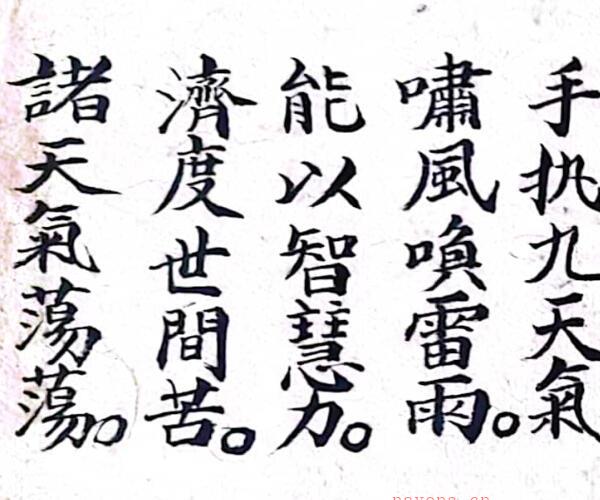 手执九天氣
嘯風喚雷雨。
能以智慧力。
濟度世間苦。
諸天氣蕩蕩。